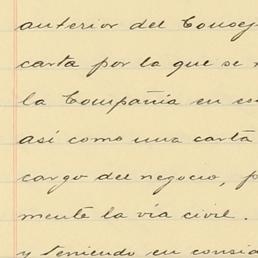 anterior del Consej
carta por la que se
la Compañía en
así como una carta
cargo del negocio, p
mente la vía civil.
y teniendo en consid